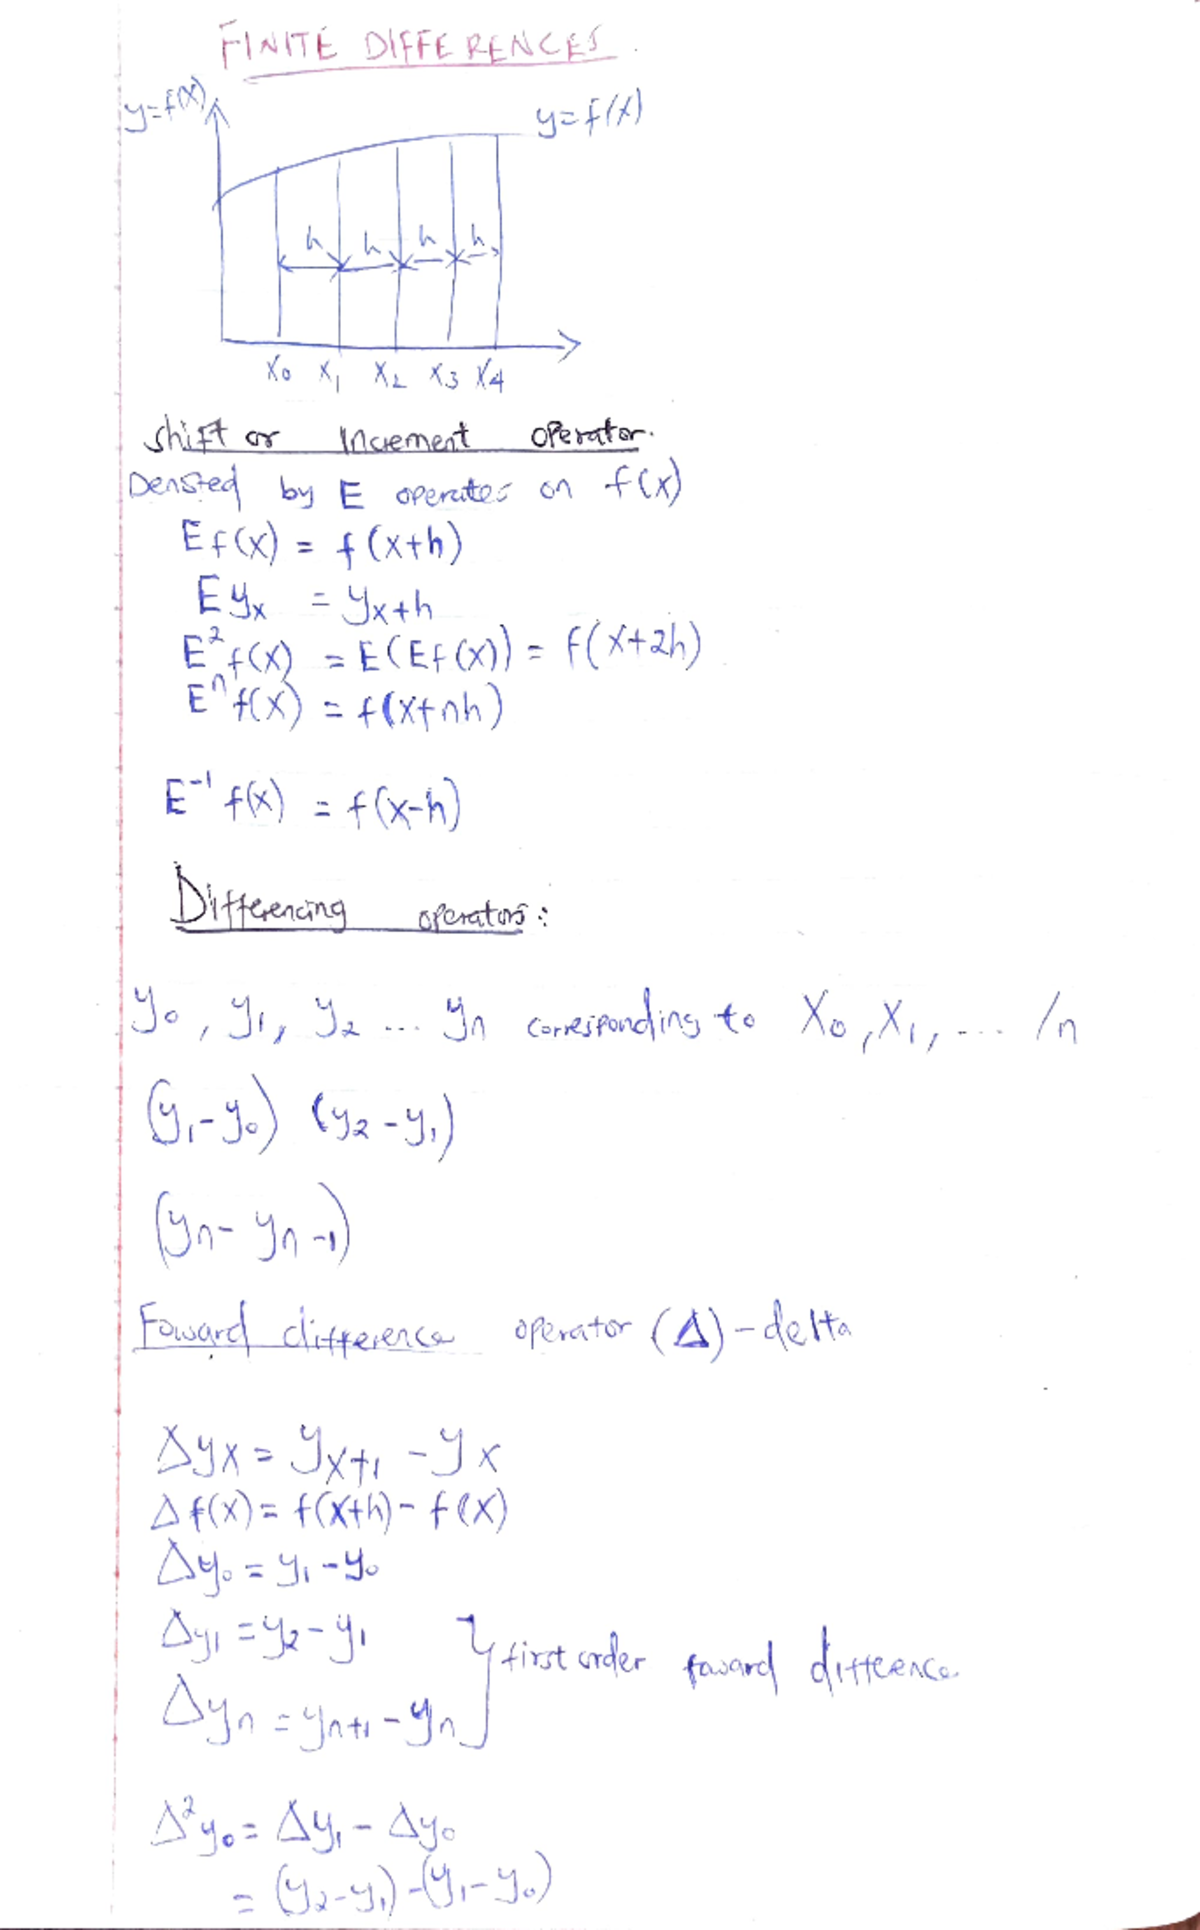 FINITE DIFFERENCES.
y=f(x)
y=f(x)
h h h h
x₀ x₁ x₂ x₃ x₄
shift or Increment operator.
Denoted by E operates on f(x)
Ef(x) = f(x+h)
Eyₓ = yₓ₊ₕ
E²f(x) = E(Ef(x)) = f(x+2h)
Eⁿf(x) = f(x+nh)
E⁻¹f(x) = f(x-h)
Differencing operators:
y₀, y₁, y₂ ... yₙ corresponding to x₀, x₁, ... /n
(y₁-y₀) (y₂-y₁)
(yₙ-yₙ₋₁)
Foward difference operator (Δ) - delta
Δyₓ = yₓ₊₁ - yₓ
Δf(x) = f(x+h) - f(x)
Δy₀ = y₁ - y₀
Δy₁ = y₂ - y₁
first order foward difference
Δyₙ = yₙ₊₁ - yₙ
Δ²y₀ = Δy₁ - Δy₀
= (y₂-y₁) - (y₁-y₀)